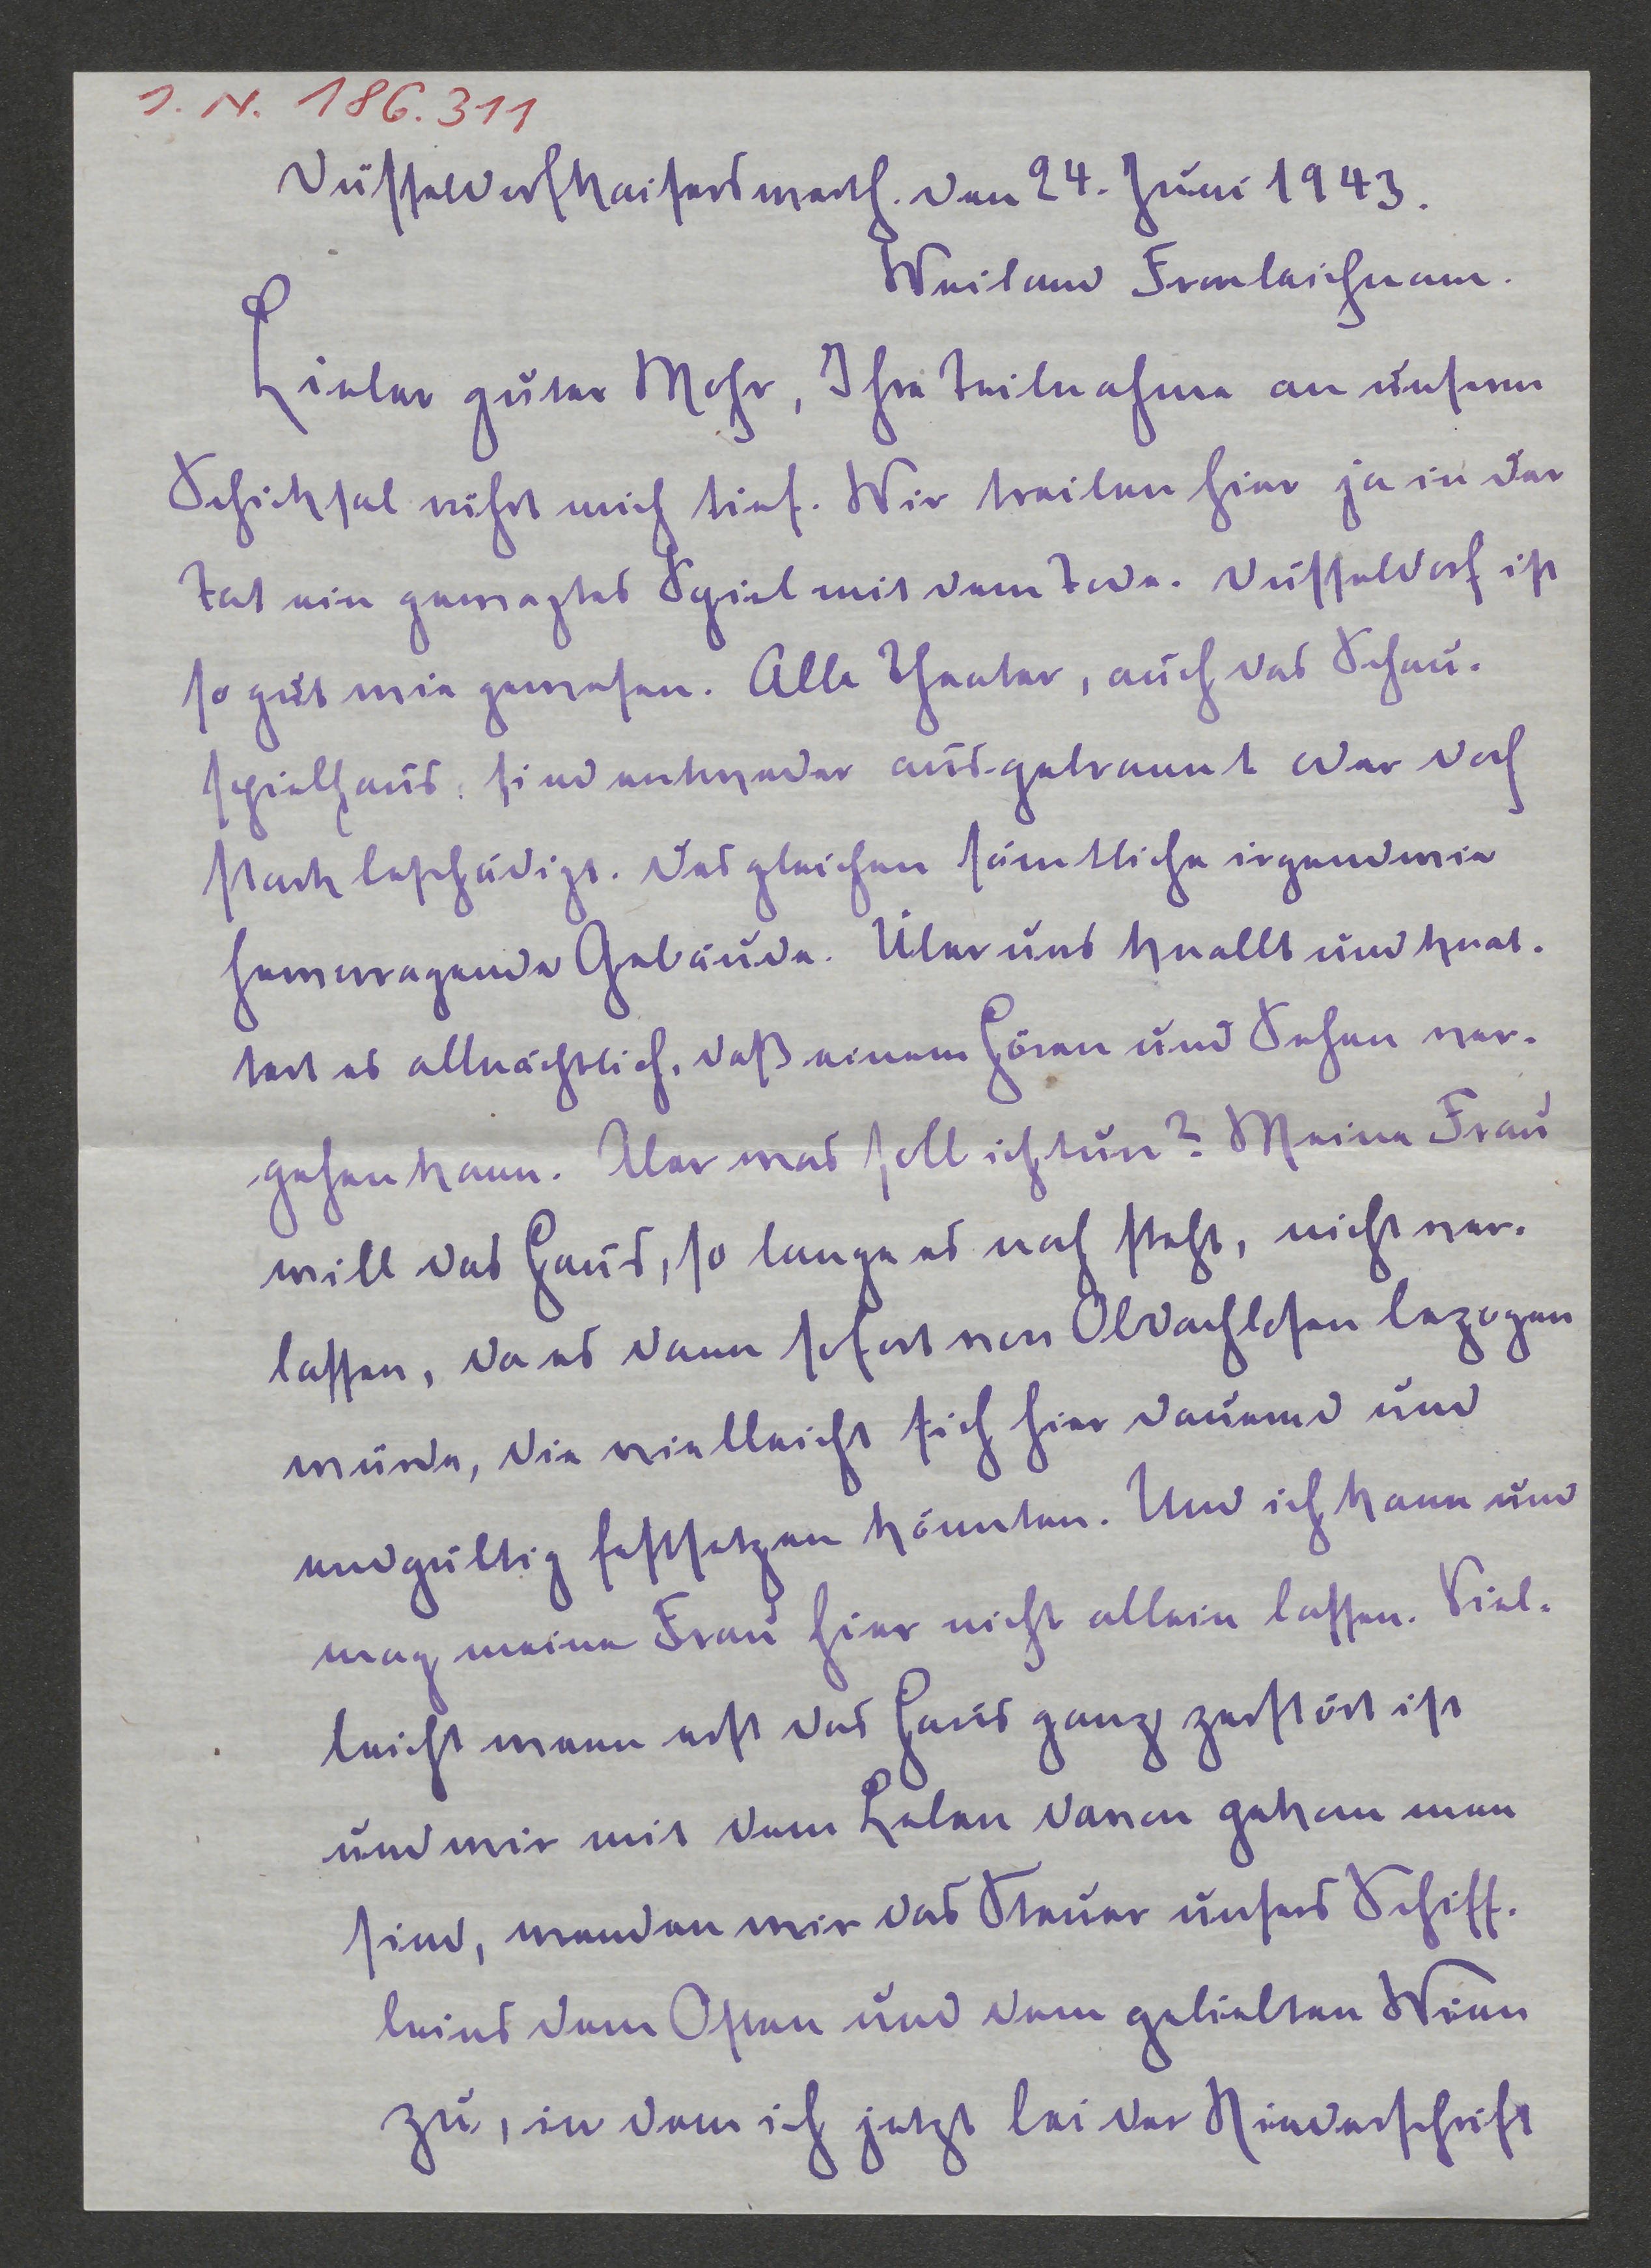 I. N. 186.311
Düsseldorf-Kaiserswerth. den 24. Juni 1943.
Weiland Fronleichnam.
Lieber guter Mohr, Ihre Teilnahme an unserm
Schicksal rührt mich tief. Wir treiben hier ja in der
Tat ein gewagtes Spiel mit dem Tode. Düsseldorf ist
so gut wie gewesen. Alle Theater, auch das Schau-
spielhaus, sind entweder ausgebrannt oder doch
stark beschädigt. Desgleichen sämtliche irgendwie
hervorragende Gebäude. Über uns knallt und knat-
tert es allnächtlich, daß einem Hören und Sehen ver-
gehen kann. Aber was soll ich tun? Meine Frau
will das Haus, so lange es noch steht, nicht ver-
lassen, da es dann sofort von Obdachlosen bezogen
würde, die vielleicht sich hier dauernd und
endgültig festsetzen könnten. Und ich kann und
mag meine Frau hier nicht allein lassen. Viel-
leicht wenn erst das Haus ganz zerstört ist
und wir mit dem Leben davon gekommen
sind, wenden wir das Steuer unsers Schiff-
leins dem Osten und dem geliebten Wien
zu, in dem ich jetzt bei der Niederschrift